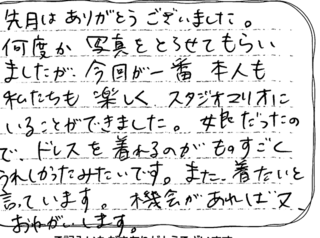 先月は ありがとう ございました。
何度か 写真をとらせてもらい
ましたが、今回が一番 本人も
私たちも 楽しく スタジオマリオに
いることができました。女児だったの
で、ドレスを着れるのがものすごく
うれしかったみたいです。また、着たいと
言っています。 機会があれば又、
おねがいします。